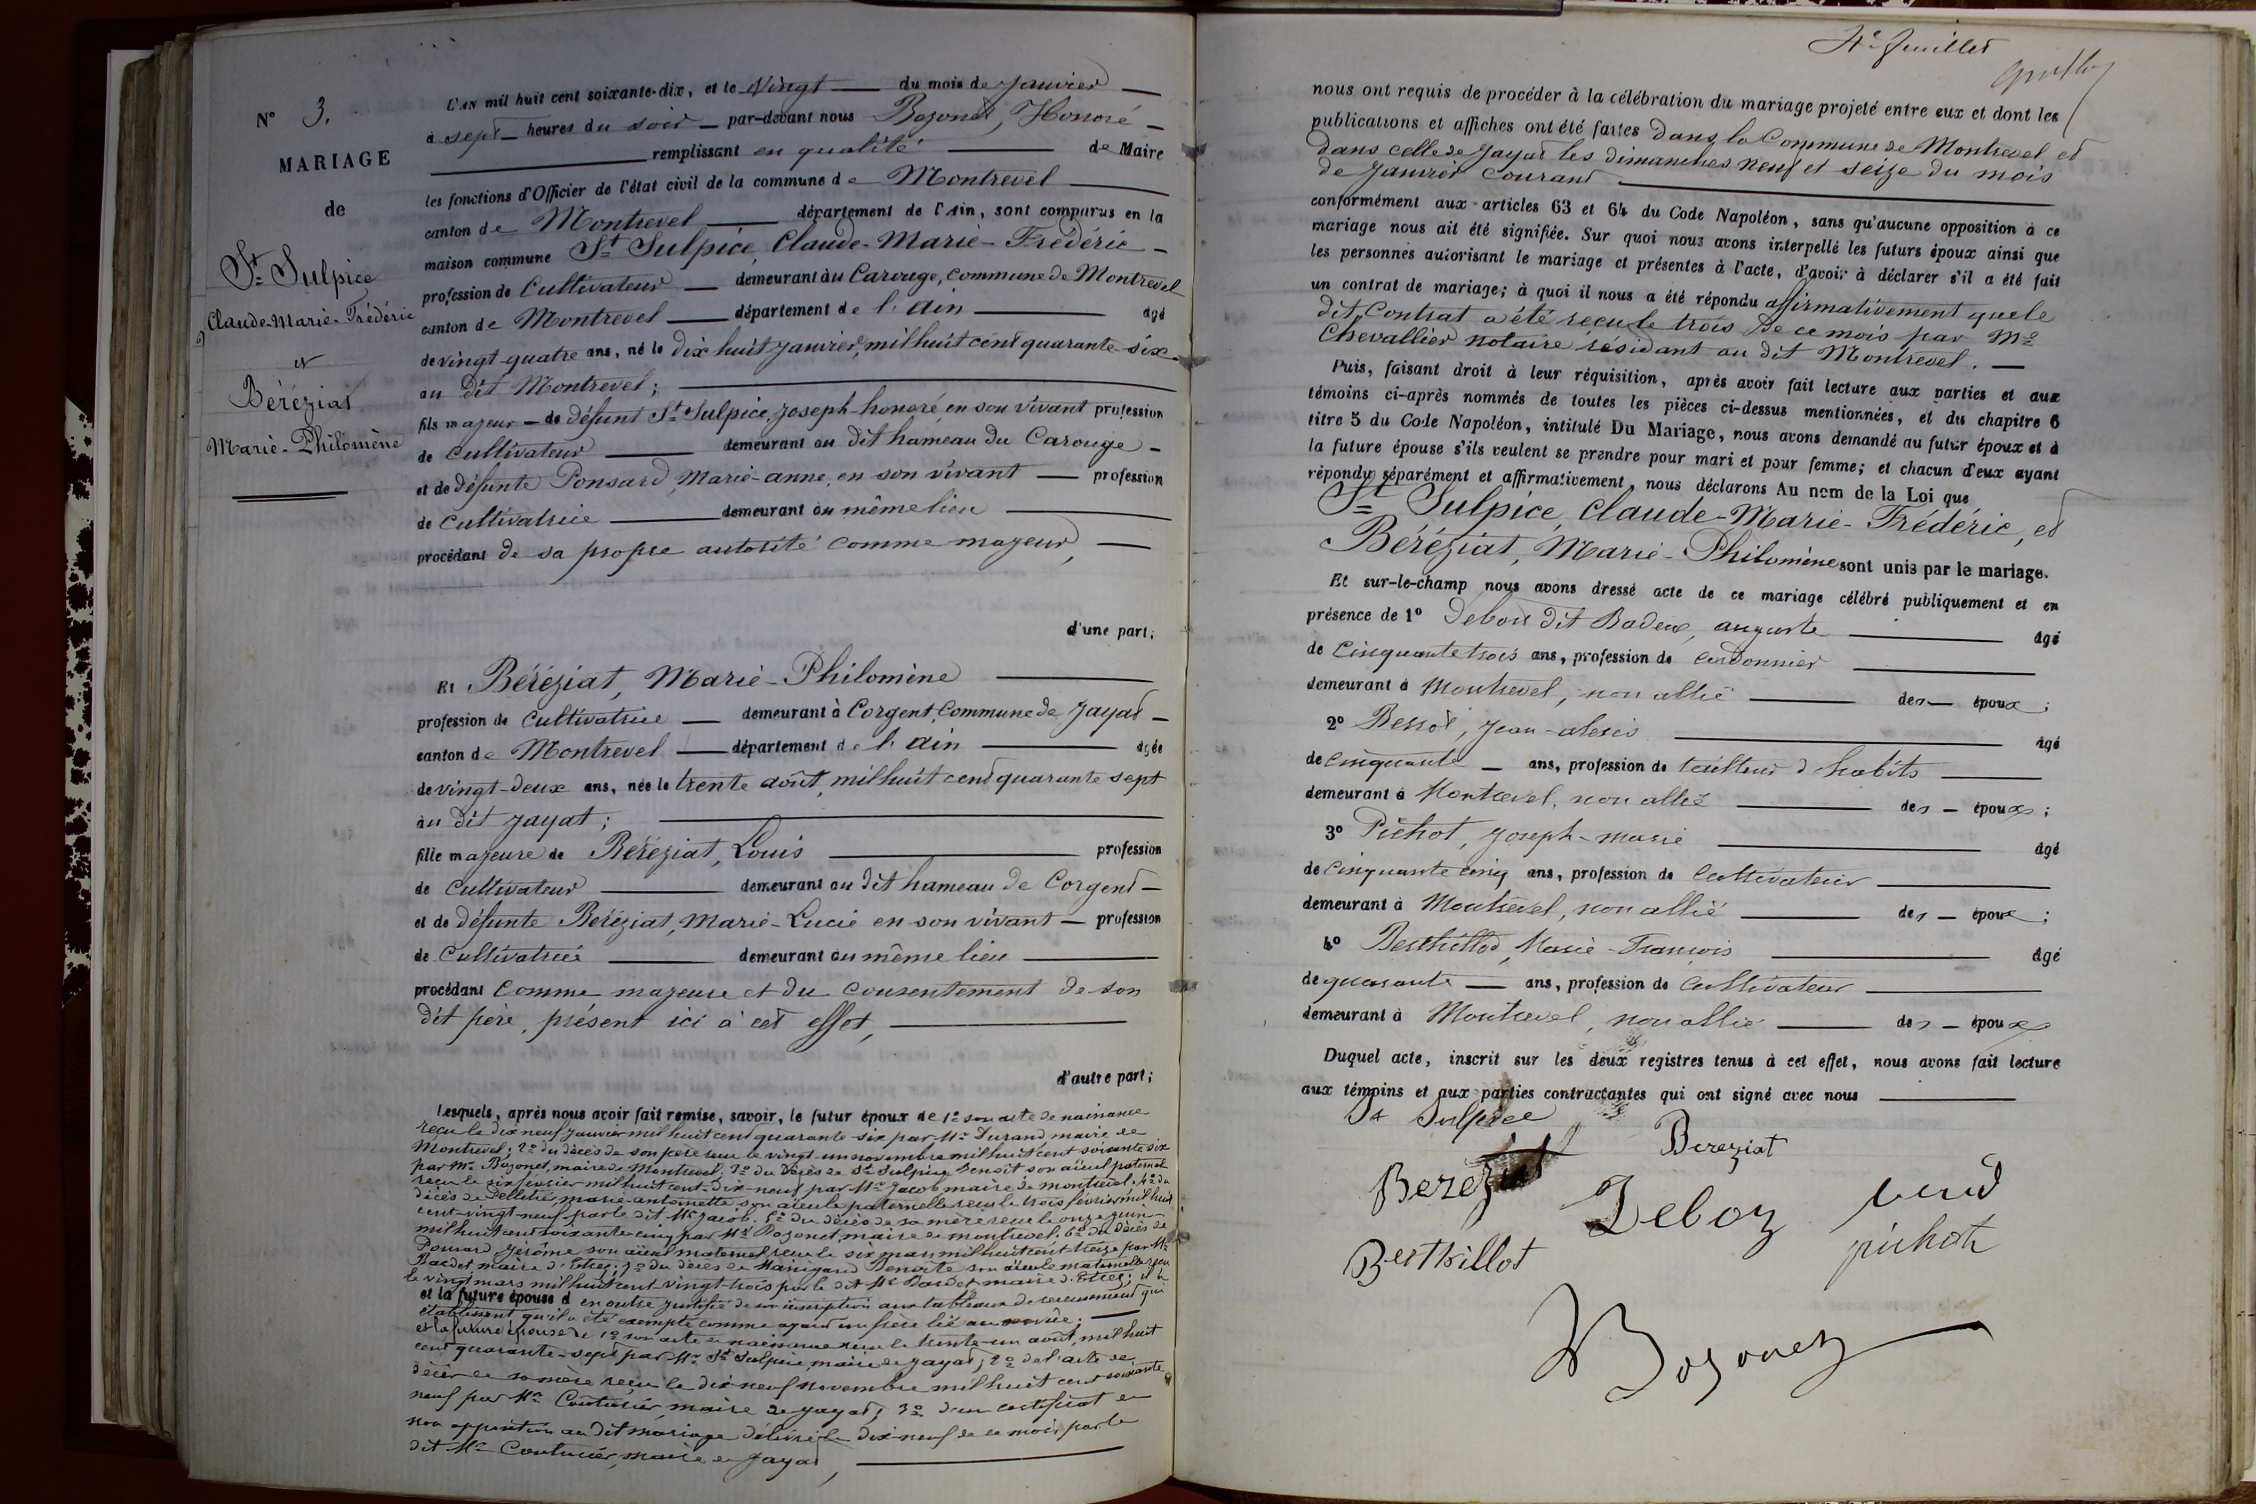 N° 3.
MARIAGE
de
St Sulpice
Claude-Marie-Frédéric
et
Béréziat
Marie-Philomène
L'an mil huit cent soixante-dix, et le Vingt du mois de Janvier
à sept heures du soir par-devant nous Bozonet, Honoré
remplissant en qualité de Maire
les fonctions d'Officier de l'état civil de la commune de Montrevel
canton de Montrevel département de l'Ain, sont comparus en la
maison commune St Sulpice, Claude-Marie-Frédéric
profession de Cultivateur demeurant au Carouge, Commune de Montrevel
canton de Montrevel département de l'Ain âgé
de vingt-quatre ans, né le dix huit Janvier, mil huit cent quarante-six
au dit Montrevel;
fils majeur de défunt St Sulpice, Joseph-honoré en son vivant profession
de Cultivateur demeurant au dit hameau du Carouge
et de défunte Ponsard, Marie-anne, en son vivant profession
de Cultivatrice demeurant au même lieu
procédant de sa propre autorité comme majeur,
d'une part;
Et Béréziat, Marie-Philomène
profession de Cultivatrice demeurant à Corgent, Commune de Jayat
canton de Montrevel département de l'Ain âgée
de vingt-deux ans, née le trente août, mil huit cent quarante sept
au dit Jayat;
fille majeure de Béréziat, Louis profession
de Cultivateur demeurant au dit hameau de Corgent
et de défunte Béréziat, Marie-Lucie en son vivant profession
de Cultivatrice demeurant au même lieu
procédant comme majeure et du consentement de son
dit père, présent ici à cet effet,
d'autre part;
Lesquels, après nous avoir fait remise, savoir, le futur époux de 1° son acte de naissance
reçu le dix neuf Janvier mil huit cent quarante-six par Mr Durand, maire de
Montrevel; 2° du décès de son père reçu le vingt-un novembre mil huit cent soixante six
par Mr Bozonet, maire de Montrevel; 3° du décès de St Sulpice Benoît son aïeul paternel
reçu le six février mil huit cent dix-neuf par Mr Jacob maire de Montrevel; 4° du
décès de Pelletier, marie-antoinette, son aïeule paternelle reçu le trois février mil huit
cent-vingt-neuf par le dit Mr Jacob; 5° du décès de sa mère reçu le onze juin
mil huit cent soixante-cinq par Mr Bozonet, maire de Montrevel; 6° du décès de
Ponsard Jérôme son aïeul maternel reçu le six mars mil huit cent treize par Mr
Bardet maire d'Etrez; 7° du décès de Benoîte son aïeule maternelle reçu
le vingt mars mil huit cent vingt-trois par le dit Mr Bardet maire d'Etrez; il a
et la future épouse d en outre justifié de son inscription aux tableaux de recensement qui
établissent qu'il a été exempté comme ayant un frère lié au service;
et la future épouse de 1° son acte de naissance reçu le trente-un août, mil huit
cent quarante-sept par Mr St Sulpice, maire de Jayat; 2° de l'acte de
décès de sa mère reçu le dix-neuf novembre mil huit cent soixante
neuf par Mr Couturier, maire de Jayat; 3° d'un certificat de
non opposition au dit mariage délivré le dix-neuf de ce mois par le
dit Mr Couturier, maire de Jayat,
4e feuillet
nous ont requis de procéder à la célébration du mariage projeté entre eux et dont les
publications et affiches ont été faites dans la Commune de Montrevel et
dans celle de Jayat les dimanches neuf et seize du mois
de Janvier courant
conformément aux articles 63 et 64 du Code Napoléon, sans qu'aucune opposition à ce
mariage nous ait été signifiée. Sur quoi nous avons interpellé les futurs époux ainsi que
les personnes autorisant le mariage et présentes à l'acte, d'avoir à déclarer s'il a été fait
un contrat de mariage; à quoi il nous a été répondu affirmativement que le
dit Contrat a été reçu le trois de ce mois par Me
Chevallier notaire résidant au dit Montrevel.
Puis, faisant droit à leur réquisition, après avoir fait lecture aux parties et aux
témoins ci-après nommés de toutes les pièces ci-dessus mentionnées, et du chapitre 6
titre 5 du Code Napoléon, intitulé Du Mariage, nous avons demandé au futur époux et à
la future épouse s'ils veulent se prendre pour mari et pour femme; et chacun d'eux ayant
répondu séparément et affirmativement, nous déclarons Au nom de la Loi que
St Sulpice, Claude-Marie-Frédéric, et
Béréziat, Marie-Philomène sont unis par le mariage.
Et sur-le-champ nous avons dressé acte de ce mariage célébré publiquement et en
présence de 1° dit auguste âgé
de Cinquante trois ans, profession de Cordonnier
demeurant à Montrevel, non allié des époux;
2° Jean-alexis âgé
de cinquante ans, profession de tailleur d'habits
demeurant à Montrevel, non allié des époux;
3° Pichot, Joseph-marie âgé
de cinquante cinq ans, profession de Cultivateur
demeurant à Montrevel, non allié des époux;
4° Berthillod, Marie-François âgé
de quarante ans, profession de Cultivateur
demeurant à Montrevel, non allié des époux
Duquel acte, inscrit sur les deux registres tenus à cet effet, nous avons fait lecture
aux témoins et aux parties contractantes qui ont signé avec nous
St Sulpice
Bereziat
Bereziat
Deboz
pichot
Berthillot
Bozonet